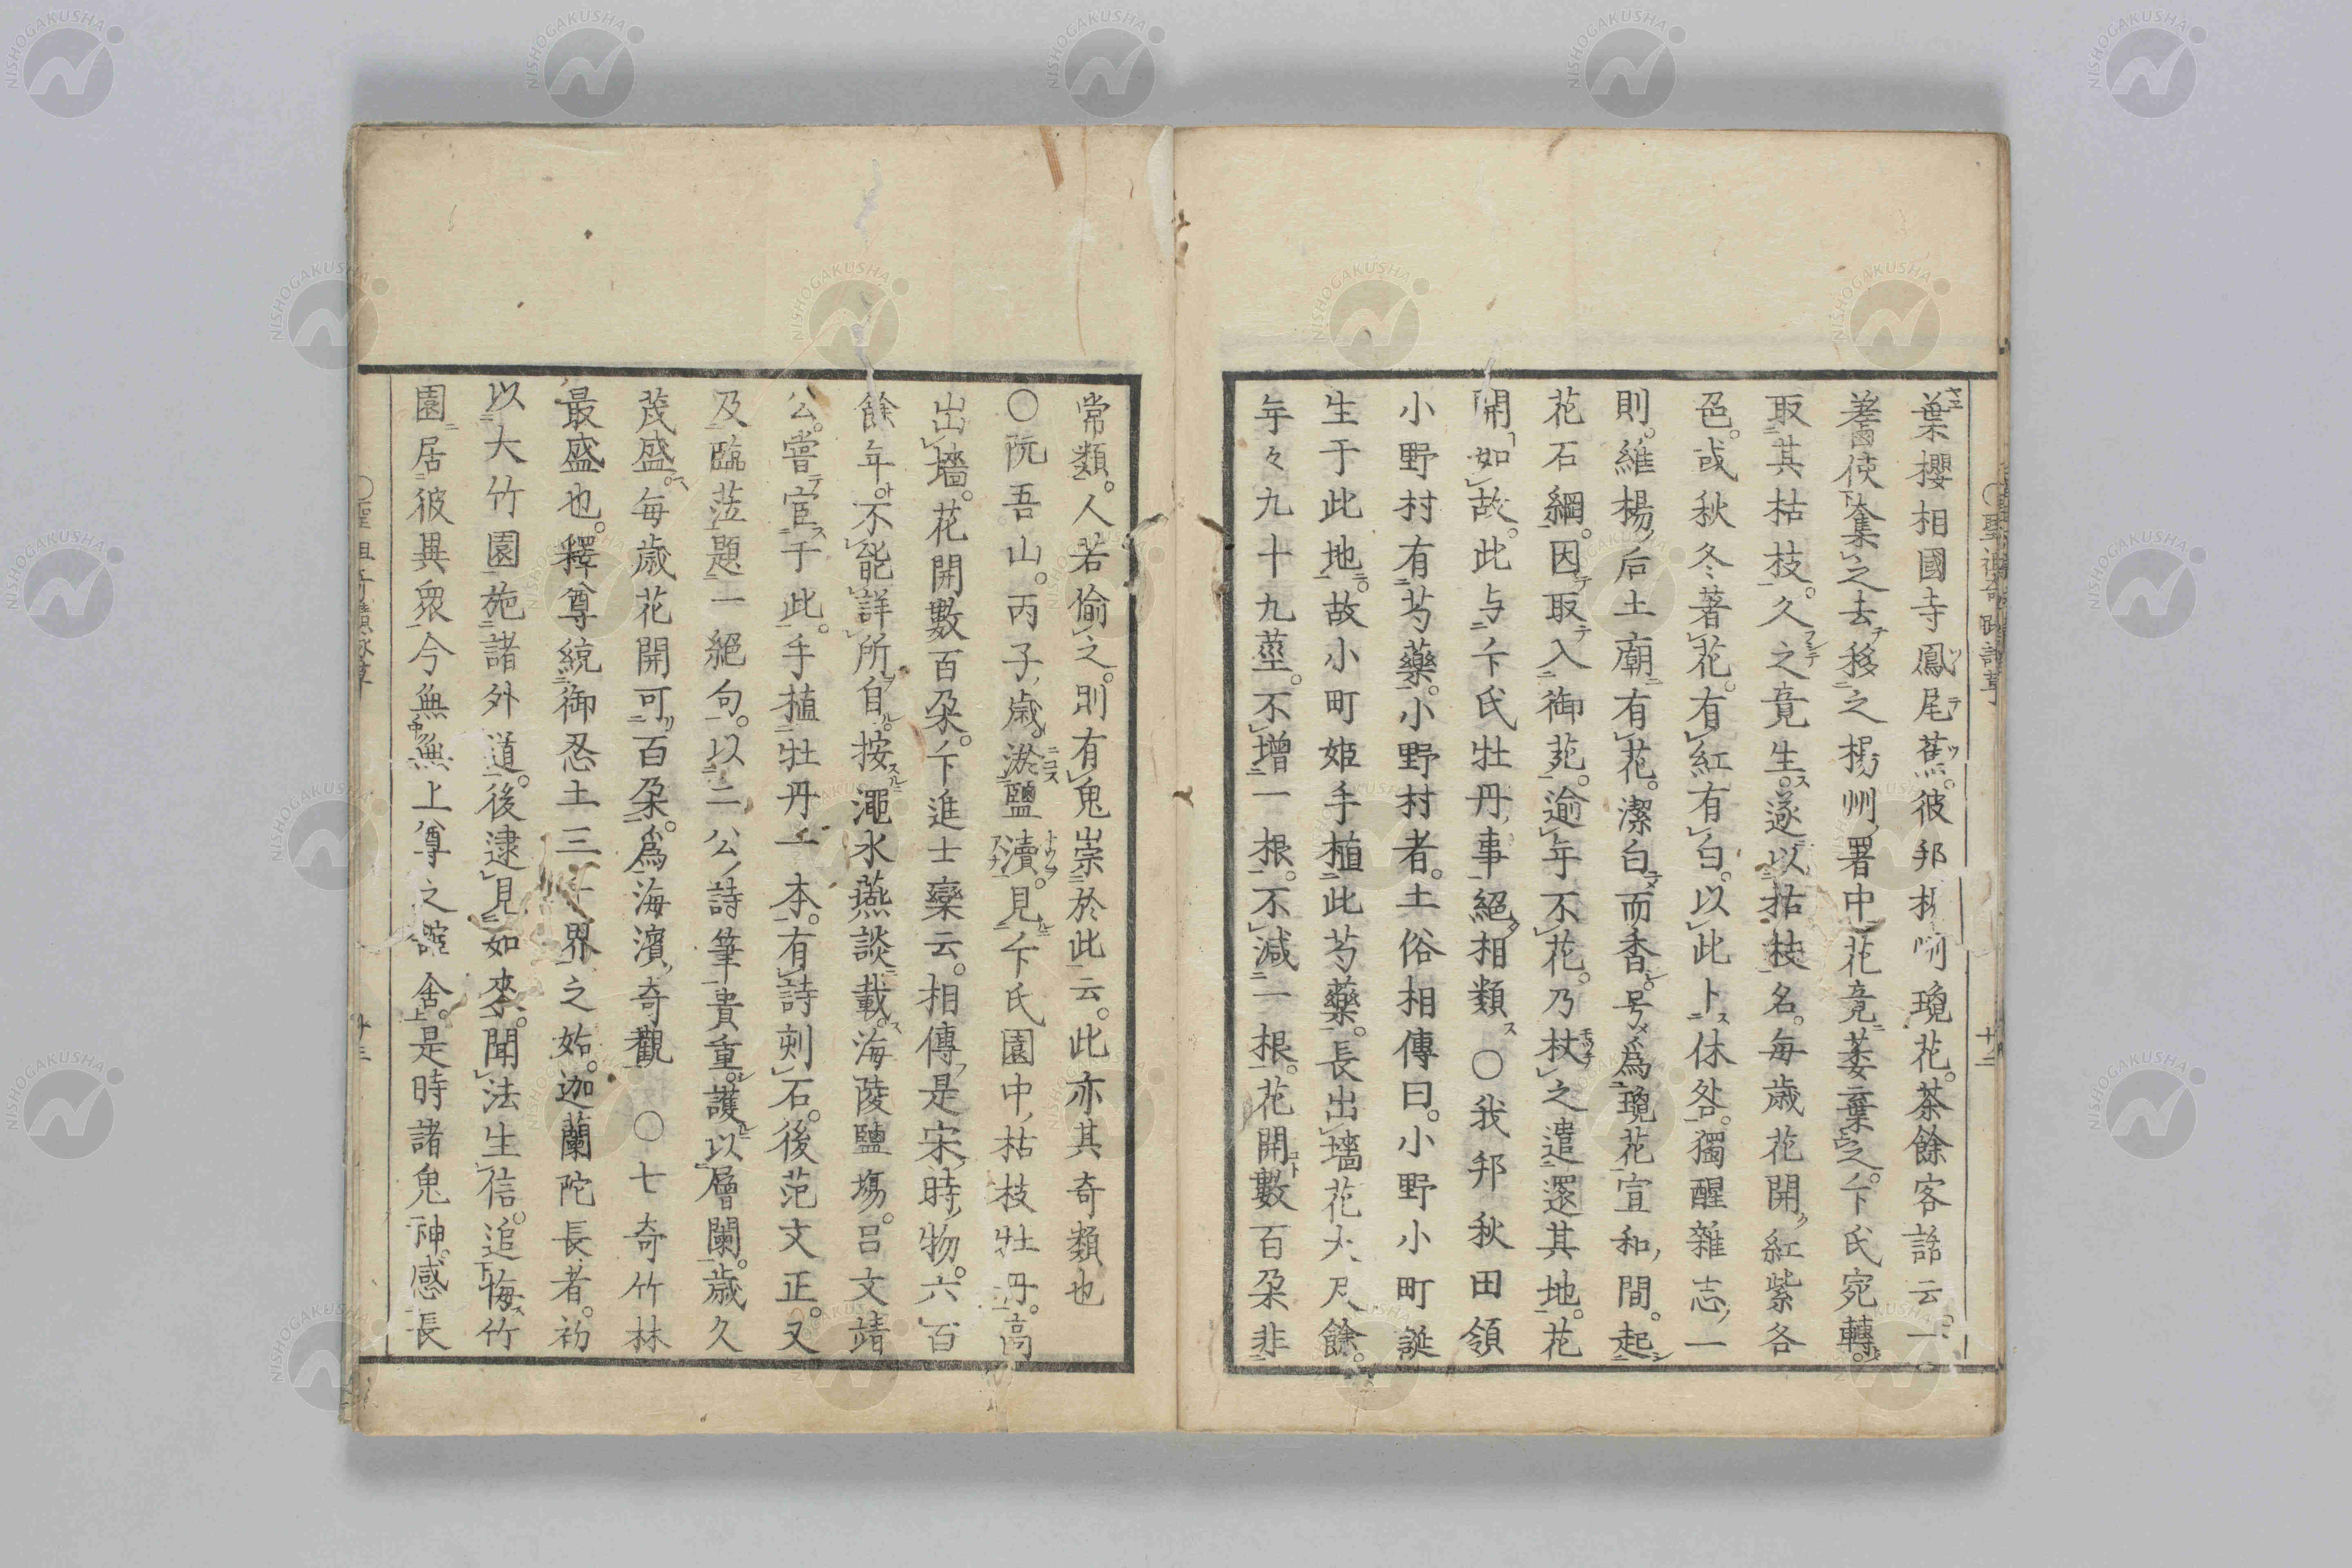 葉櫻相國寺鳳尾蕉。彼邦瓊花。茶餘客話云。一
蕃使大集之去移之楊州署中花竟萎棄之。卞氏宛轉。
取其枯枝。久之竟生。遂以枯枝名。每歲花開紅紫各
色。或秋冬著花。有紅有白。以此卜休咎。獨醒雜志一
則。維楊后土廟有花。潔白而香。号爲瓊花宣和間。起
花石綱。因取入御苑。逾年不花。乃杖之遣還其地。花
開如故。此与卞氏牡丹事絕相類 〇我邦秋田領
小野村有芍藥。小野村者。土俗相傳曰。小野小町誕
生于此地。故小町姬手植此芍藥。長出墻花大尺餘。
年々九十九莖。不增一根。不減一根。花開數百朶非
常類。人若偷之。則有鬼祟於此云。此亦其奇類也
〇阮吾山。丙子歲。淤鹽瀆。見卞氏園中枯枝牡丹。高
出墻。花開數百朶。卞進士欒云。相傳是宋時物。六百
餘年。不能詳所自。按澠水燕談載。海陵鹽塲。呂文靖
公。嘗官于此。手植牡丹一本。有詩刻石。後范文正。又
及臨蒞題一絕句。以二公詩筆貴重。護以層闌。歲久
茂盛。每歲花開可百朶。爲海濱奇觀 〇七奇竹林
最盛也。釋尊統御忍土三千界之始。迦蘭陀長者。初
以大竹園施諸外道。後逮見如來。聞法生信。追悔竹
園居彼異衆今無無上尊之舘舍。是時諸鬼神。感長
十二